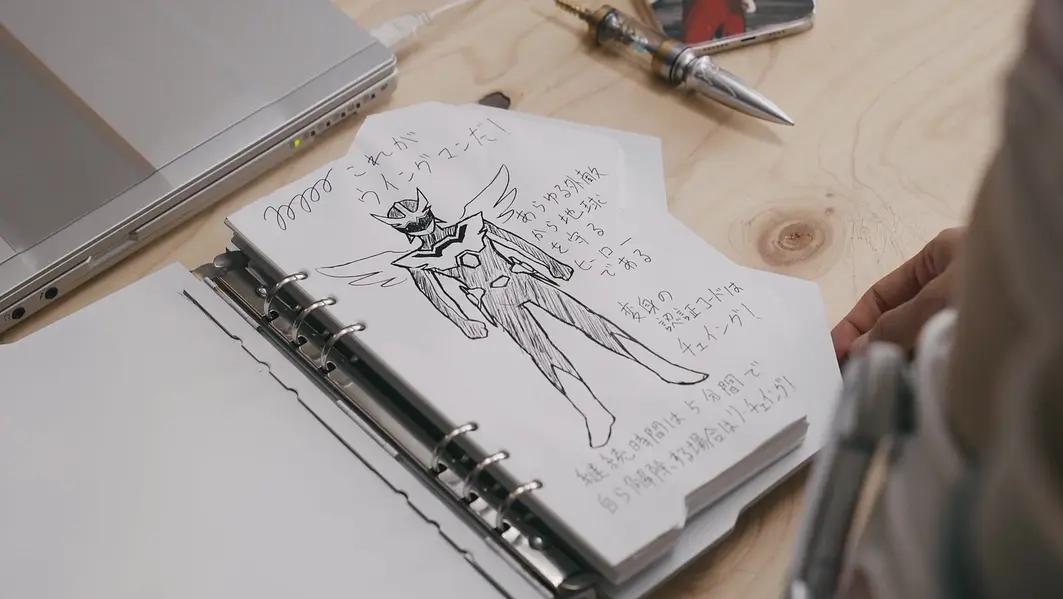 これが
ウイングマンだ！
あらゆる外敵
から地球
を守る
ヒーロー
である
変身の
認証コードは
チェイング！
継続時間は5分間で
自ら解除する場合はリ・チェイング！